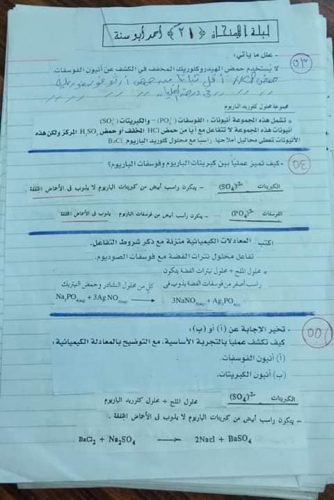 ليلة الامتحان «٢١» أحمد أبوسنة
- علل ما يأتي:
لا يستخدم حمض الهيدروكلوريك المخفف في الكشف عن أنيون الفوسفات
حمض أقل ثباتًا من حمض
مجموعة محلول كلوريد الباريوم
• تشمل هذه المجموعة أنيونات: الفوسفات (PO₄)³⁻ والكبريتات (SO₄)²⁻
أنيونات هذه المجموعة لا تتفاعل مع أيا من حمض HCl المخفف أو حمض H₂SO₄ المركز ولكن هذه
الأنيونات تعطي محاليل أملاحها راسبا مع محلول كلوريد الباريوم BaCl₂
- كيف تميز عمليا بين كبريتات الباريوم وفوسفات الباريوم؟
الكبريتات (SO₄)²⁻ – يتكون راسب أبيض من كبريتات الباريوم لا يذوب في الأحماض المخففة
الفوسفات (PO₄)³⁻ – يتكون راسب أبيض من فوسفات الباريوم يذوب في الأحماض المخففة
اكتب المعادلات الكيميائية متزنة مع ذكر شروط التفاعل.
تفاعل محلول نترات الفضة مع فوسفات الصوديوم.
• محلول الملح + محلول نترات الفضة يتكون
راسب أصفر من فوسفات الفضة يذوب في كل من محلول النشادر وحمض النيتريك
Na₃PO₄(aq) + 3AgNO₃(aq) ⟶ 3NaNO₃(aq) + Ag₃PO₄(s)
- تخير الإجابة عن (أ) أو (ب):
كيف تكشف عمليا بالتجربة الأساسية، مع التوضيح بالمعادلة الكيميائية:
(أ) أنيون الفوسفات.
(ب) أنيون الكبريتات.
الكبريتات (SO₄)²⁻ محلول الملح + محلول كلوريد الباريوم
– يتكون راسب أبيض من كبريتات الباريوم لا يذوب في الأحماض المخففة.
BaCl₂ + Na₂SO₄ ⟶ 2Nacl + BaSO₄